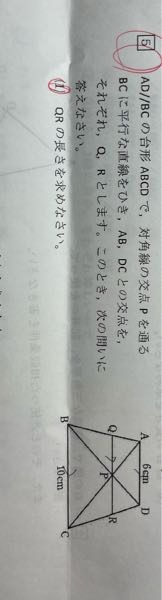 5 AD//BCの台形ABCDで、対角線の交点Pを通る
BCに平行な直線をひき、AB、DCとの交点を、
それぞれ、Q、Rとします。このとき、次の問いに
答えなさい。
(1) QRの長さを求めなさい。
A
6cm
D
Q
P
R
B
10cm
C